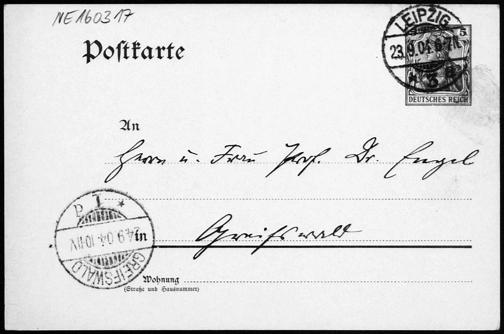 NE160317
Postkarte
LEIPZIG
23.9.04.6-7N.
* 3 a
5
DEUTSCHES REICH
An
Herrn u. Frau Prof. Dr. Engel
in
Greifswald
GREIFSWALD
24.9.04.10-11V.
* 1 P
Wohnung
(Straße und Hausnummer)